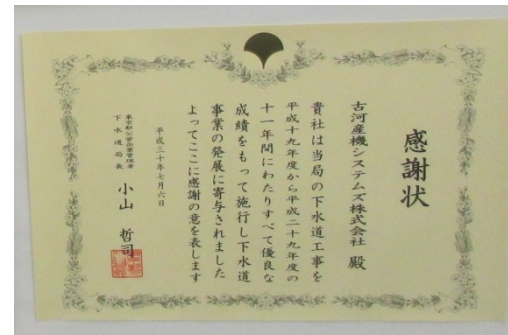 感謝状
古河産機システムズ株式会社 殿
貴社は当局の下水道工事を
平成十九年度から平成二十九年度の
十一年間にわたりすべて優良な
成績をもって施行し下水道
事業の発展に寄与されました
よってここに感謝の意を表します
平成三十年七月六日
東京都公営企業管理者
下水道局長 小山 哲司